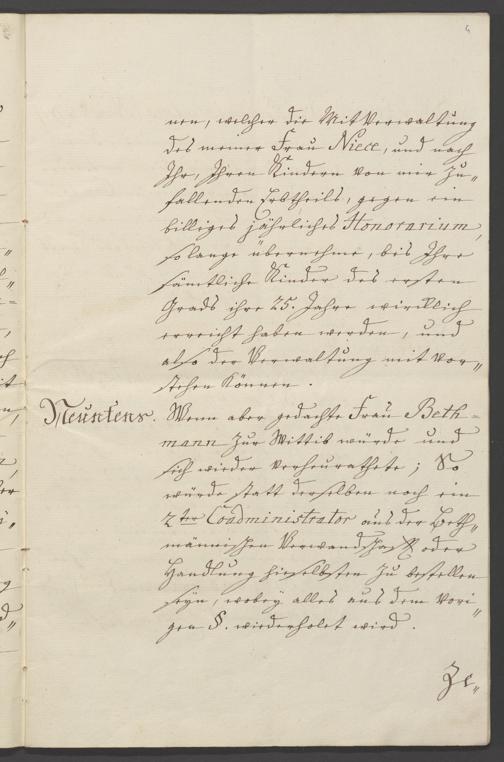 nen, welcher die MitVerwaltung
des meiner Frau Niece, und nach
Ihr, Ihren Kindern von mir zu„
fallenden Erbtheils, gegen ein
billiges jährliches Honorarium,
solange übernehme, bis Ihre
sämtliche Kinder des ersten
Grads ihre 25. Jahre würcklich
erreicht haben werden, und
also der Verwaltung mit vor„
stehen können.
Neuntens. Wenn aber gedachte Frau Beth=
mann zur Wittib würde und
sich wieder verheurathete; So
würde statt derselben noch ein
2ter Coadministrator aus der Beth„
männischen Verwandschafft oder
Handlung hieselbsten zu bestellen
seyn, wobey alles aus dem vori„
gen §. wiederholet wird.
Ze„